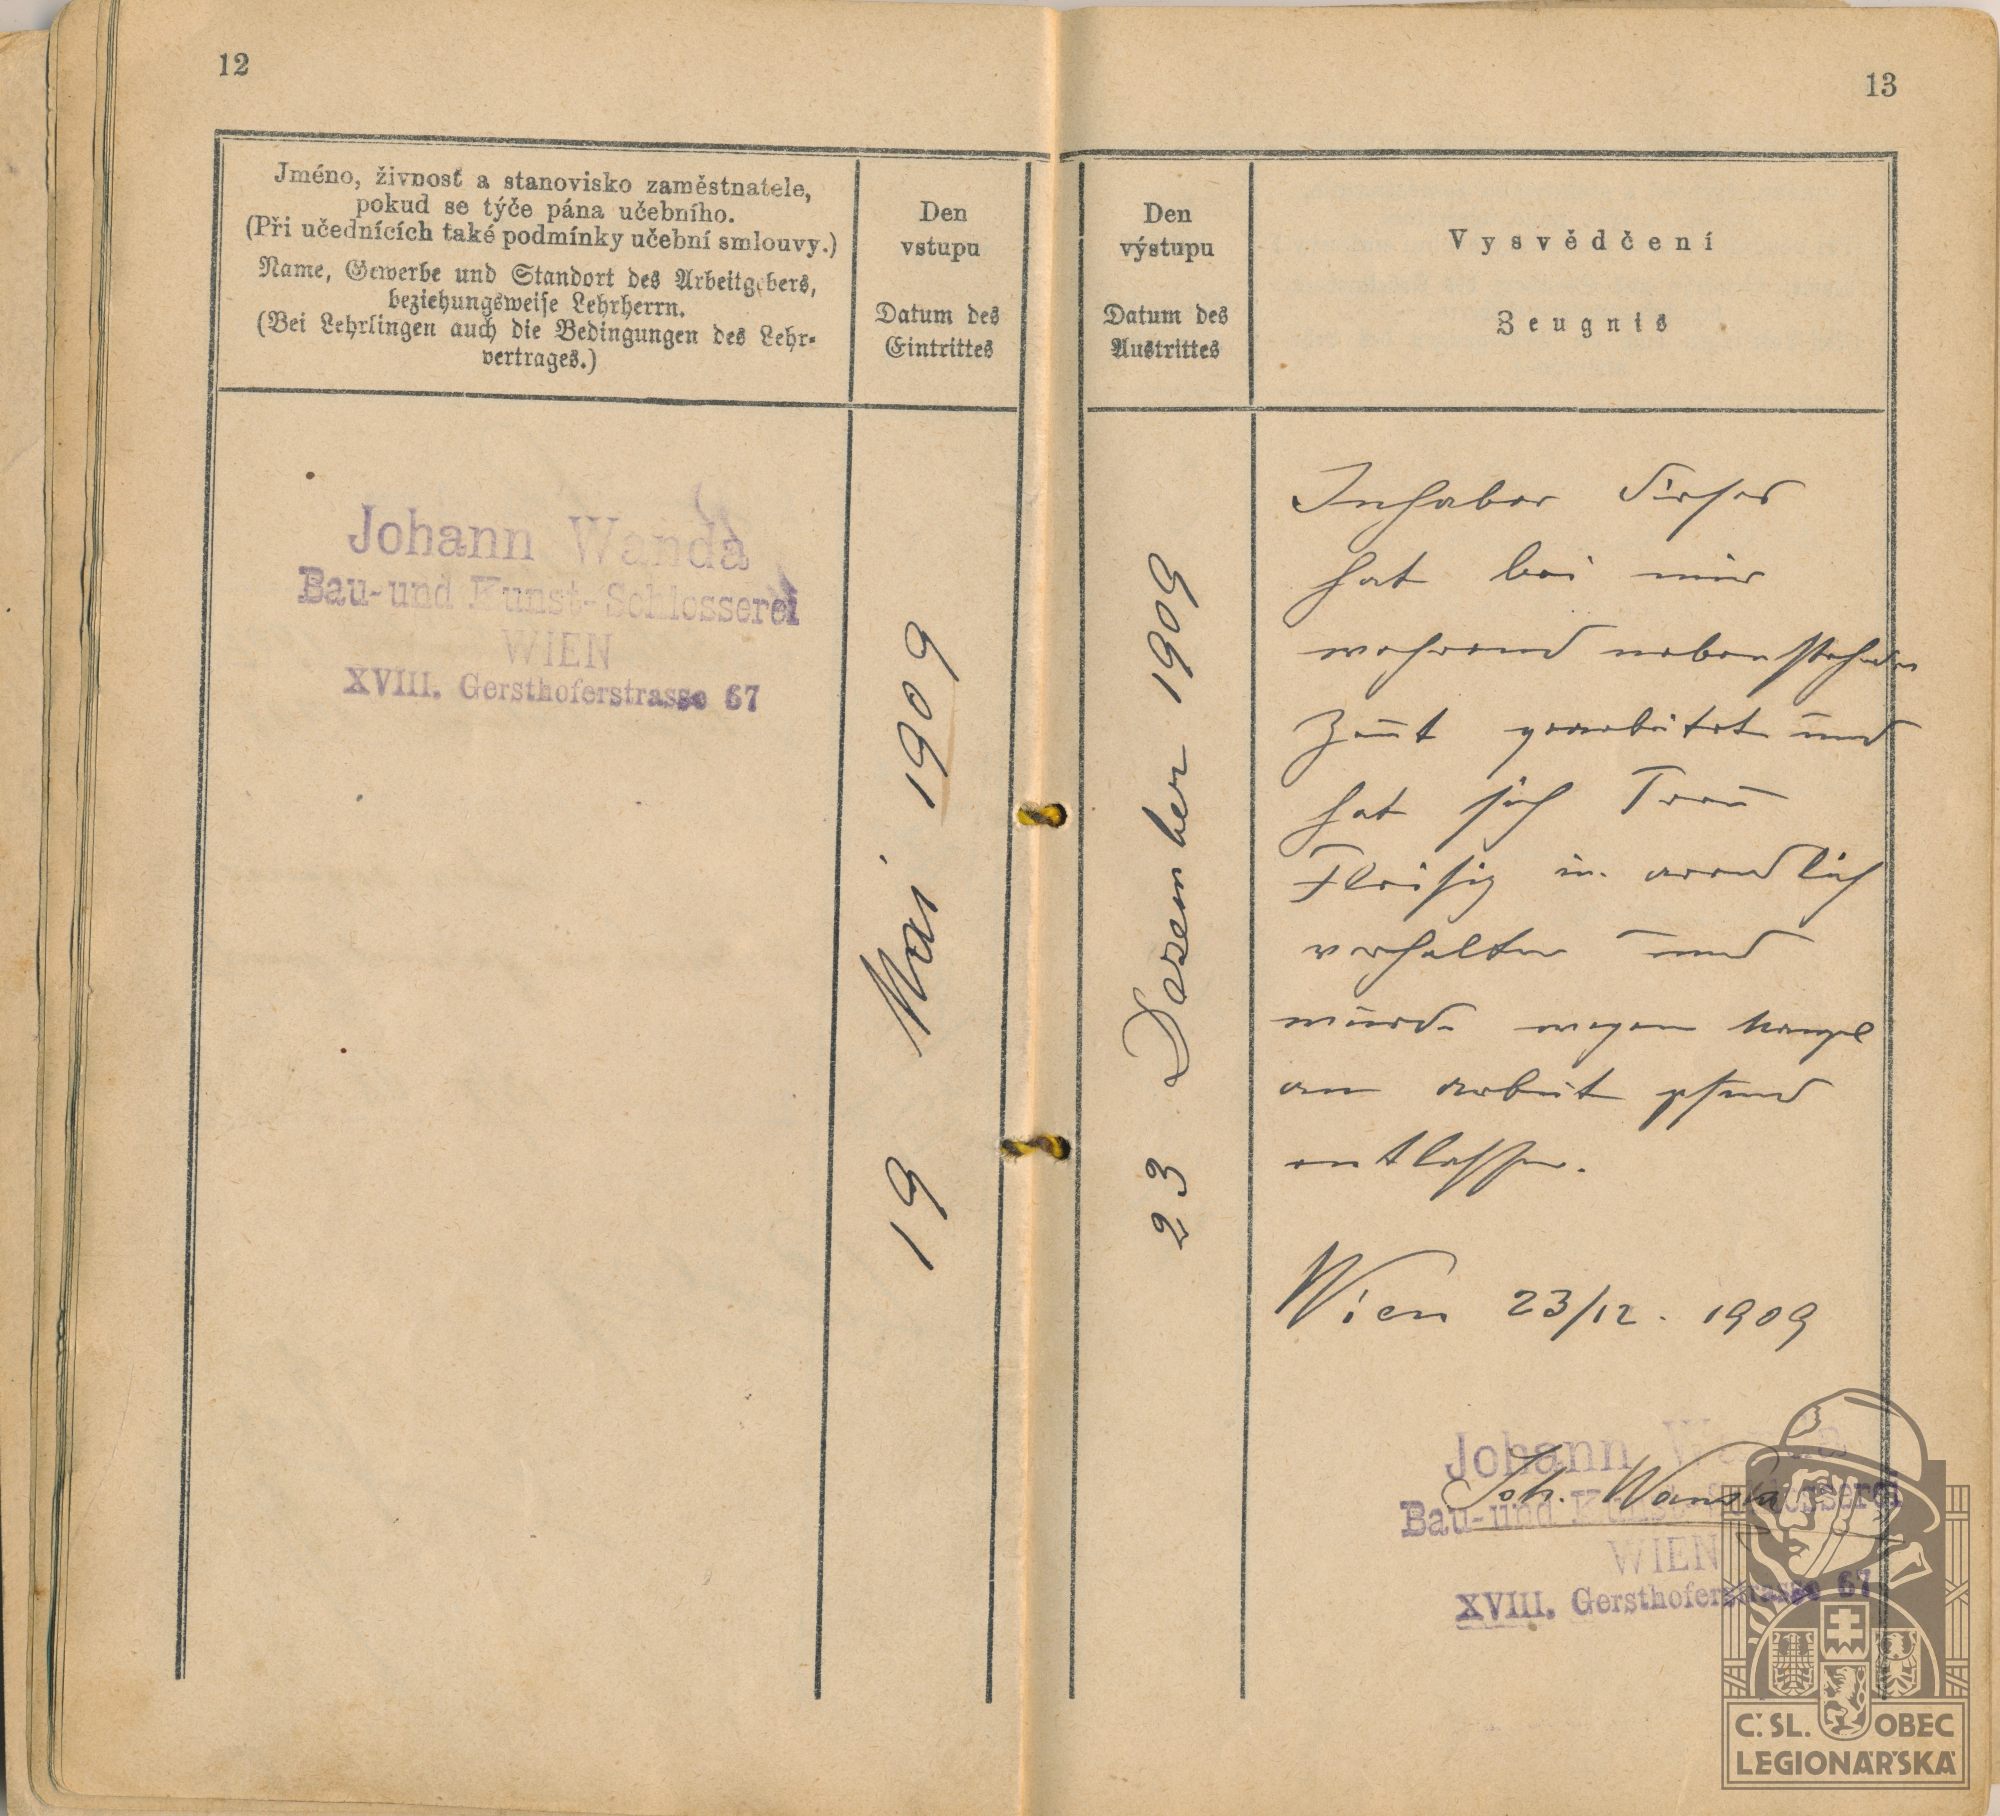 12
Jméno, živnosť a stanovisko zaměstnatele,
pokud se týče pána učebního.
(Při učednících také podmínky učební smlouvy.)
Name, Gewerbe und Standort des Arbeitgebers,
beziehungsweise Lehrherrn.
(Bei Lehrlingen auch die Bedingungen des Lehr-
vertrages.)
Den
vstupu
Datum des
Eintrittes
Johann Wanda
Bau- und Kunst-Schlosserei
WIEN
XVIII. Gersthoferstrasse 67
19 Mai 1909
13
Den
výstupu
Datum des
Austrittes
Vysvědčení
Zeugnis
23 Dezember 1909
Inhaber dieses
hat bei mir
wehrend nebenstehender
Zeit gearbeitet und
hat sich Treu
Fleisig u. orendlich
verhalten und
wurde wegen Mangel
an arbeit
entlassen.
Wien 23/12. 1909
Johann Wanda
Bau- und Kunst-Schlosserei
WIEN
XVIII. Gersthoferstrasse 67
Joh. Wanda
Č. SL. OBEC
LEGIONÁŘSKÁ